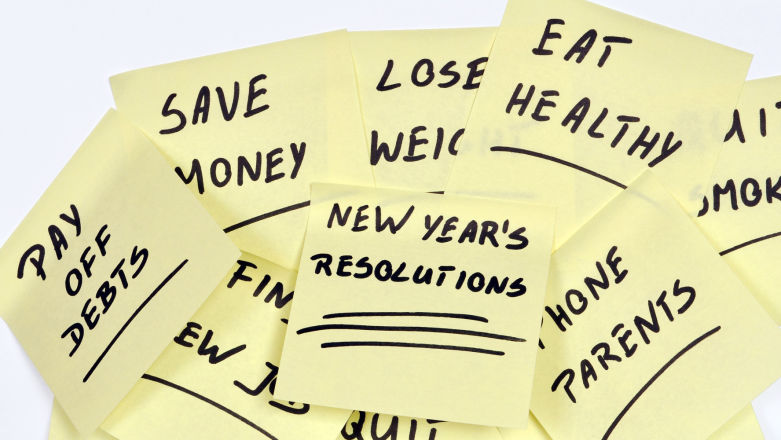 SAVE
MONEY
LOSE
WEIG
EAT
HEALTHY
UIT
SMOK
PAY
OFF
DEBTS
NEW YEAR'S
RESOLUTIONS
PHONE
PARENTS
FIN
EW JOB
QUIT